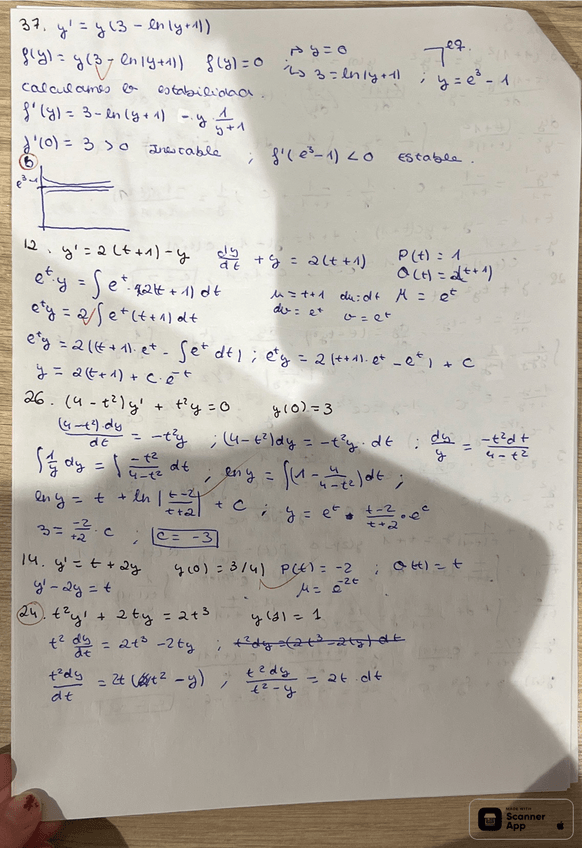 37. y' = y(3 - ln(y+1))
f(y) = y(3 - ln(y+1)) f(y) = 0 ↦ y = 0 eq.
↳ 3 = ln(y+1) ; y = e³ - 1
calculamos la estabilidad.
f'(y) = 3 - ln(y+1) - y · 1/(y+1)
f'(0) = 3 > 0 Inestable ; f'(e³-1) < 0 estable.
e³-1
12. y' = 2(t+1) - y dy/dt + y = 2(t+1) P(t) = 1
Q(t) = 2(t+1)
e^t · y = ∫ e^t · 2(t+1) dt u = t+1 du = dt μ = e^t
e^t y = 2 ∫ e^t (t+1) dt dv = e^t v = e^t
e^t y = 2((t+1) · e^t - ∫ e^t dt) ; e^t y = 2((t+1) · e^t - e^t) + C
y = 2(t+1) + C · e^-t
26. (4-t²)y' + t²y = 0 y(0) = 3
(4-t²) · dy/dt = -t²y ; (4-t²)dy = -t²y · dt ; dy/y = -t²dt/(4-t²)
∫ 1/y dy = ∫ -t²/(4-t²) dt ; ln y = ∫(1 - 4/(4-t²)) dt ;
ln y = t + ln |(t-2)/(t+2)| + C ; y = e^t · (t-2)/(t+2) · e^c
3 = -2/+2 · C ; C = -3
14. y' = t + 2y y(0) = 3/4) P(t) = -2 ; Q(t) = t
y' - 2y = t μ = e^-2t
24. t²y' + 2ty = 2t³ y(1) = 1
t² dy/dt = 2t³ - 2ty ; t²dy = (2t³ - 2ty) dt
t²dy/dt = 2t(t² - y) ; t²dy/(t²-y) = 2t · dt
MADE WITH
Scanner
App